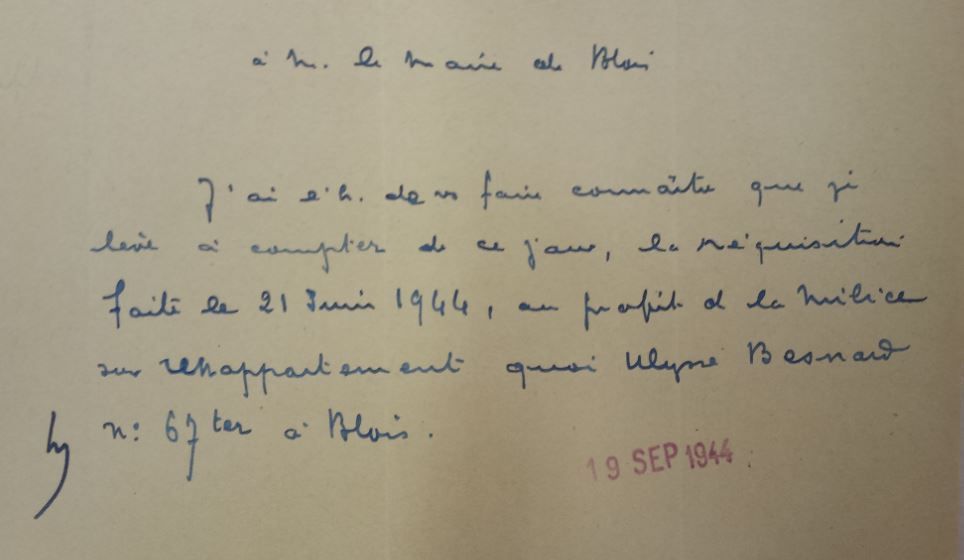 à M. le Maire de Blois
J'ai l'h. de vs faire connaître que je
lève à compter de ce jour, la réquisition
faite le 21 Juin 1944, au profit d la Milice
sur appartement quai Ulysse Besnard
n: 67 ter à Blois.
19 SEP 1944